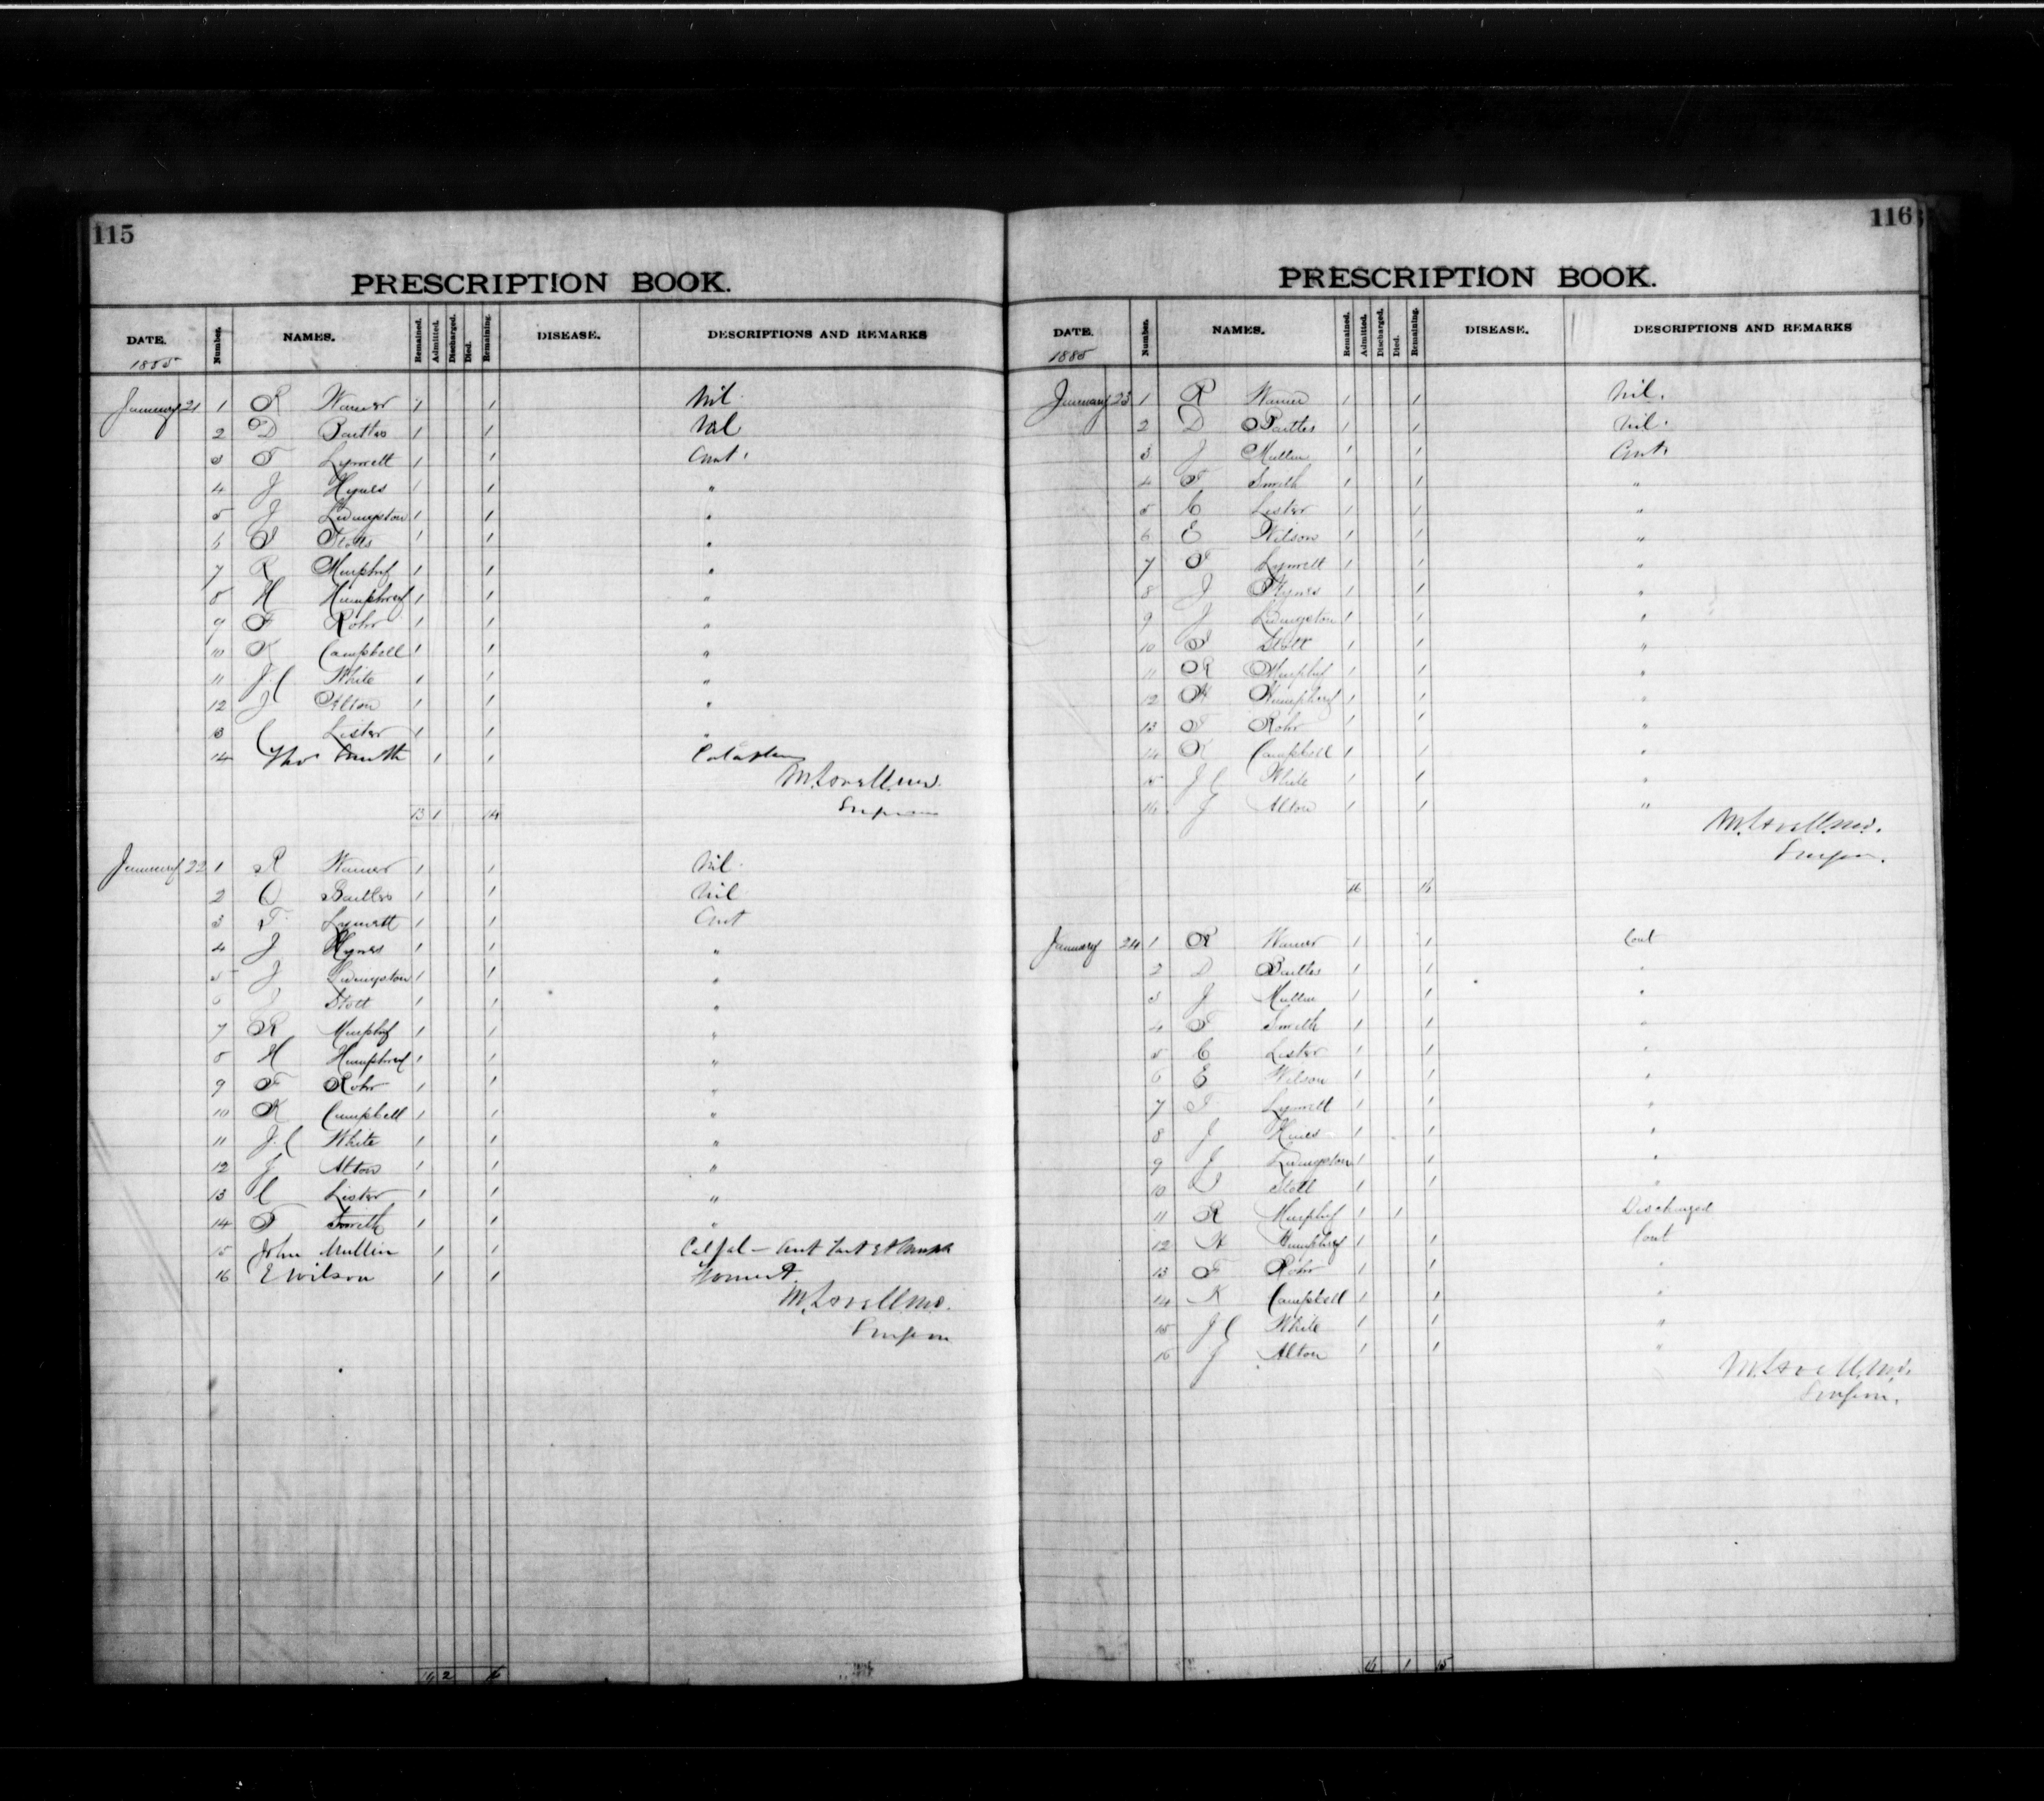 115
PRESCRIPTION BOOK.
DATE. Number. NAMES. Remained. Admitted. Discharged. Died. Remaining. DISEASE. DESCRIPTIONS AND REMARKS
1885
January 21 1 R Warner 1 1 Nil
2 D Bartles 1 1 Nil
3 T Lymett 1 1 Cont.
4 J Hynes 1 1 "
5 J Livingston 1 1 "
6 Stotts 1 1 "
7 R Murphy 1 1 "
8 H Humphrey 1 1 "
9 F Rohr 1 1 "
10 K Campbell 1 1 "
11 J. C White 1 1 "
12 J Alton 1 1 "
13 C Lister 1 1 "
14 Thos Smith 1 1
M. Lovell M.D.
Surgeon
13 1 14
January 22 1 R Warner 1 1 Nil
2 D Bartles 1 1 Nil
3 T Lymett 1 1 Cont
4 J Hynes 1 1 "
5 J Livingston 1 1 "
6 Stott 1 1 "
7 R Murphy 1 1 "
8 H Humphrey 1 1 "
9 F Rohr 1 1 "
10 K Campbell 1 1 "
11 J. C White 1 1 "
12 J Alton 1 1 "
13 C Lister 1 1 "
14 T Smith 1 1 "
15 John Mullin 1 1
16 E Wilson 1 1
M. Lovell M.D.
Surgeon
14 2 16
116
PRESCRIPTION BOOK.
DATE. Number. NAMES. Remained. Admitted. Discharged. Died. Remaining. DISEASE. DESCRIPTIONS AND REMARKS
1885
January 23 1 R Warner 1 1 Nil.
2 D Bartles 1 1 Nil.
3 J Mullin 1 1 Cont.
4 T Smith 1 1 "
5 C Lister 1 1 "
6 E Wilson 1 1 "
7 T Lymett 1 1 "
8 J Hynes 1 1 "
9 J Livingston 1 1 "
10 Stott 1 1 "
11 R Murphy 1 1 "
12 H Humphrey 1 1 "
13 F Rohr 1 1 "
14 K Campbell 1 1 "
15 J C White 1 1 "
16 J Alton 1 1 "
M. Lovell M.D.
Surgeon.
16 16
January 24 1 R Warner 1 1 Cont
2 D Bartles 1 1 "
3 J Mullin 1 1 "
4 T Smith 1 1 "
5 C Lister 1 1 "
6 E Wilson 1 1 "
7 T Lymett 1 1 "
8 J Hines 1 1 "
9 J Livingston 1 1 "
10 Stott 1 1 "
11 R Murphy 1 1 Discharged
12 H Humphrey 1 1 Cont
13 F Rohr 1 1 "
14 K Campbell 1 1 "
15 J C White 1 1 "
16 J Alton 1 1 "
M. Lovell M.D.
Surgeon.
16 1 15